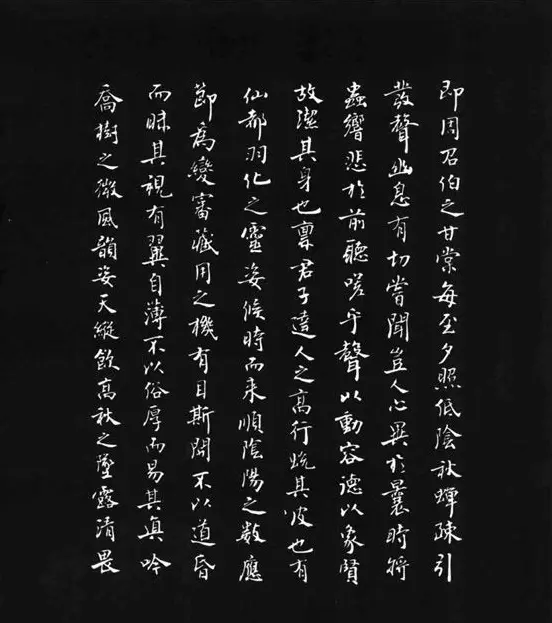 即周召伯之甘棠每至夕照低陰秋蟬疎引
發聲幽息有切嘗聞豈人心異於曩時將
蟲響悲於前聽嗟乎聲以動容德以象賢
故潔其身也稟君子達人之高行蛻其皮也有
仙都羽化之靈姿候時而来順陰陽之數應
節為變審藏用之機有目斯開不以道昏
而昧其視有翼自薄不以俗厚而易其真吟
喬樹之微風韻姿天縱飲高秋之墜露清畏